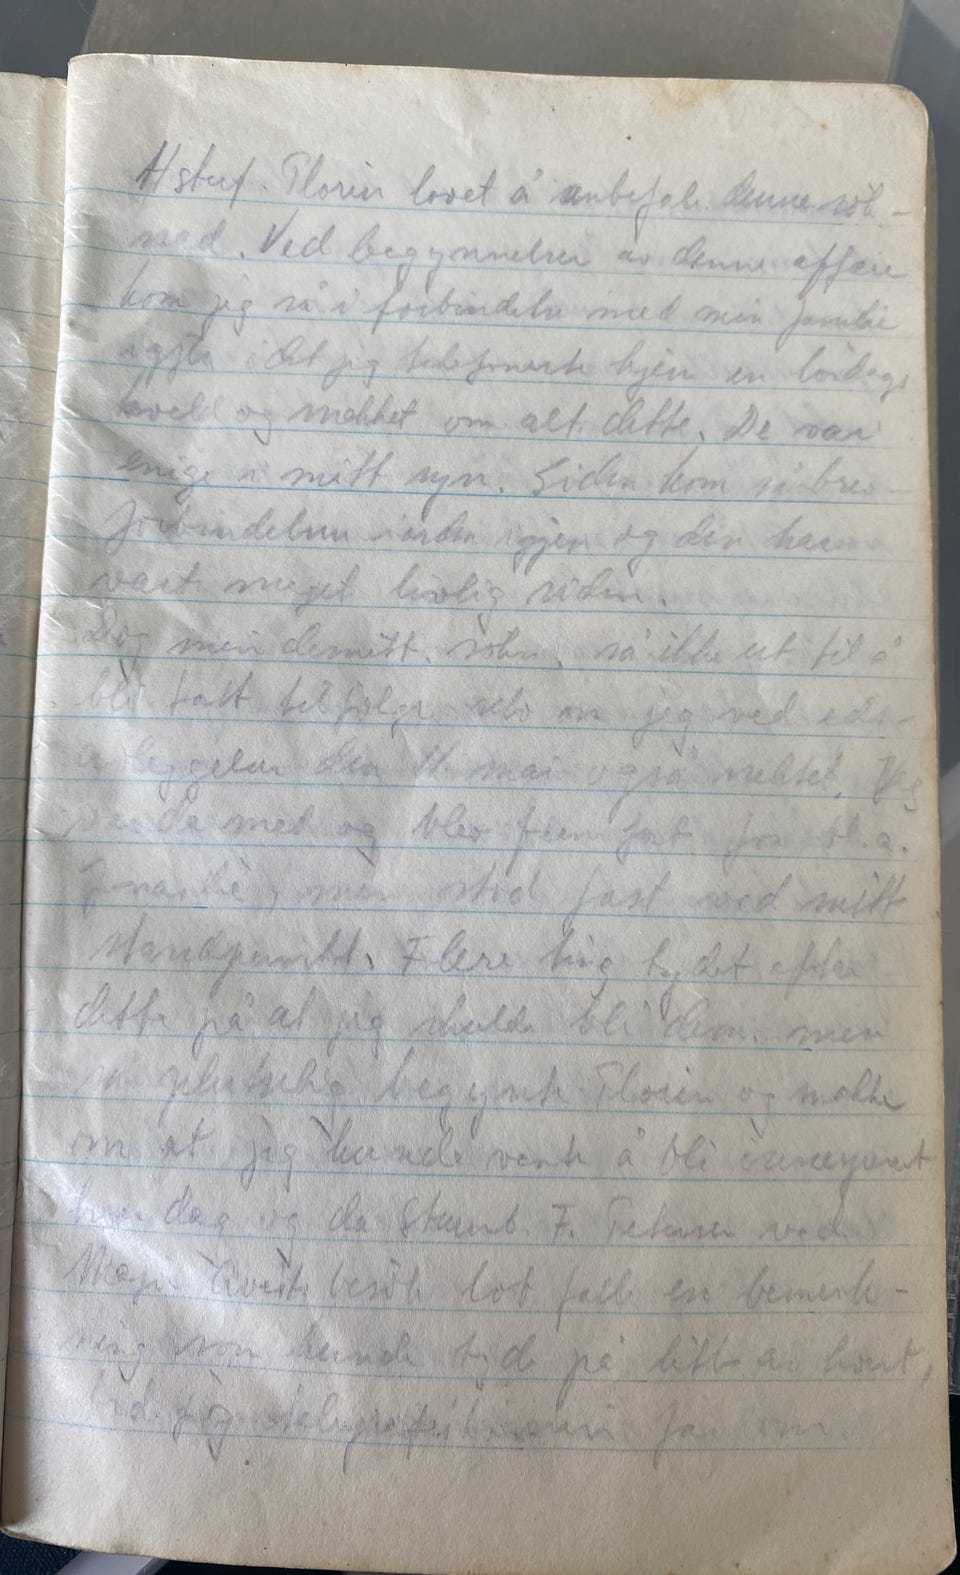 Hstuf. Florin lovet å anbefale denne søk-
nad. Ved begynnelsen av denne affære
kom jeg så i forbindelse med min familie
igjen idet jeg telefonerte hjem en lørdags
kveld og meldtet om alt dette. De var
enige i mitt syn. Siden kom så brev-
forbindelsen i orden igjen og den har
vært meget livlig siden.
Dog min demitt. søkn. så ikke ut til å
bli tatt tilfølge selv om jeg ved eds-
avleggelsen den 11. mai også nektet. Jeg
da med og blev for bl.a.
men stod fast ved mitt
standpunkt. Flere ting tydet efter
dette på at jeg skulde bli dem. men
så plutselig begynte Florin og snakke
om at jeg kunde vente å bli
hver dag og da Sturmb. F. ved
besøk lot falle en bemerk-
ning som kunde tyde på litt av hvert,
jeg far om